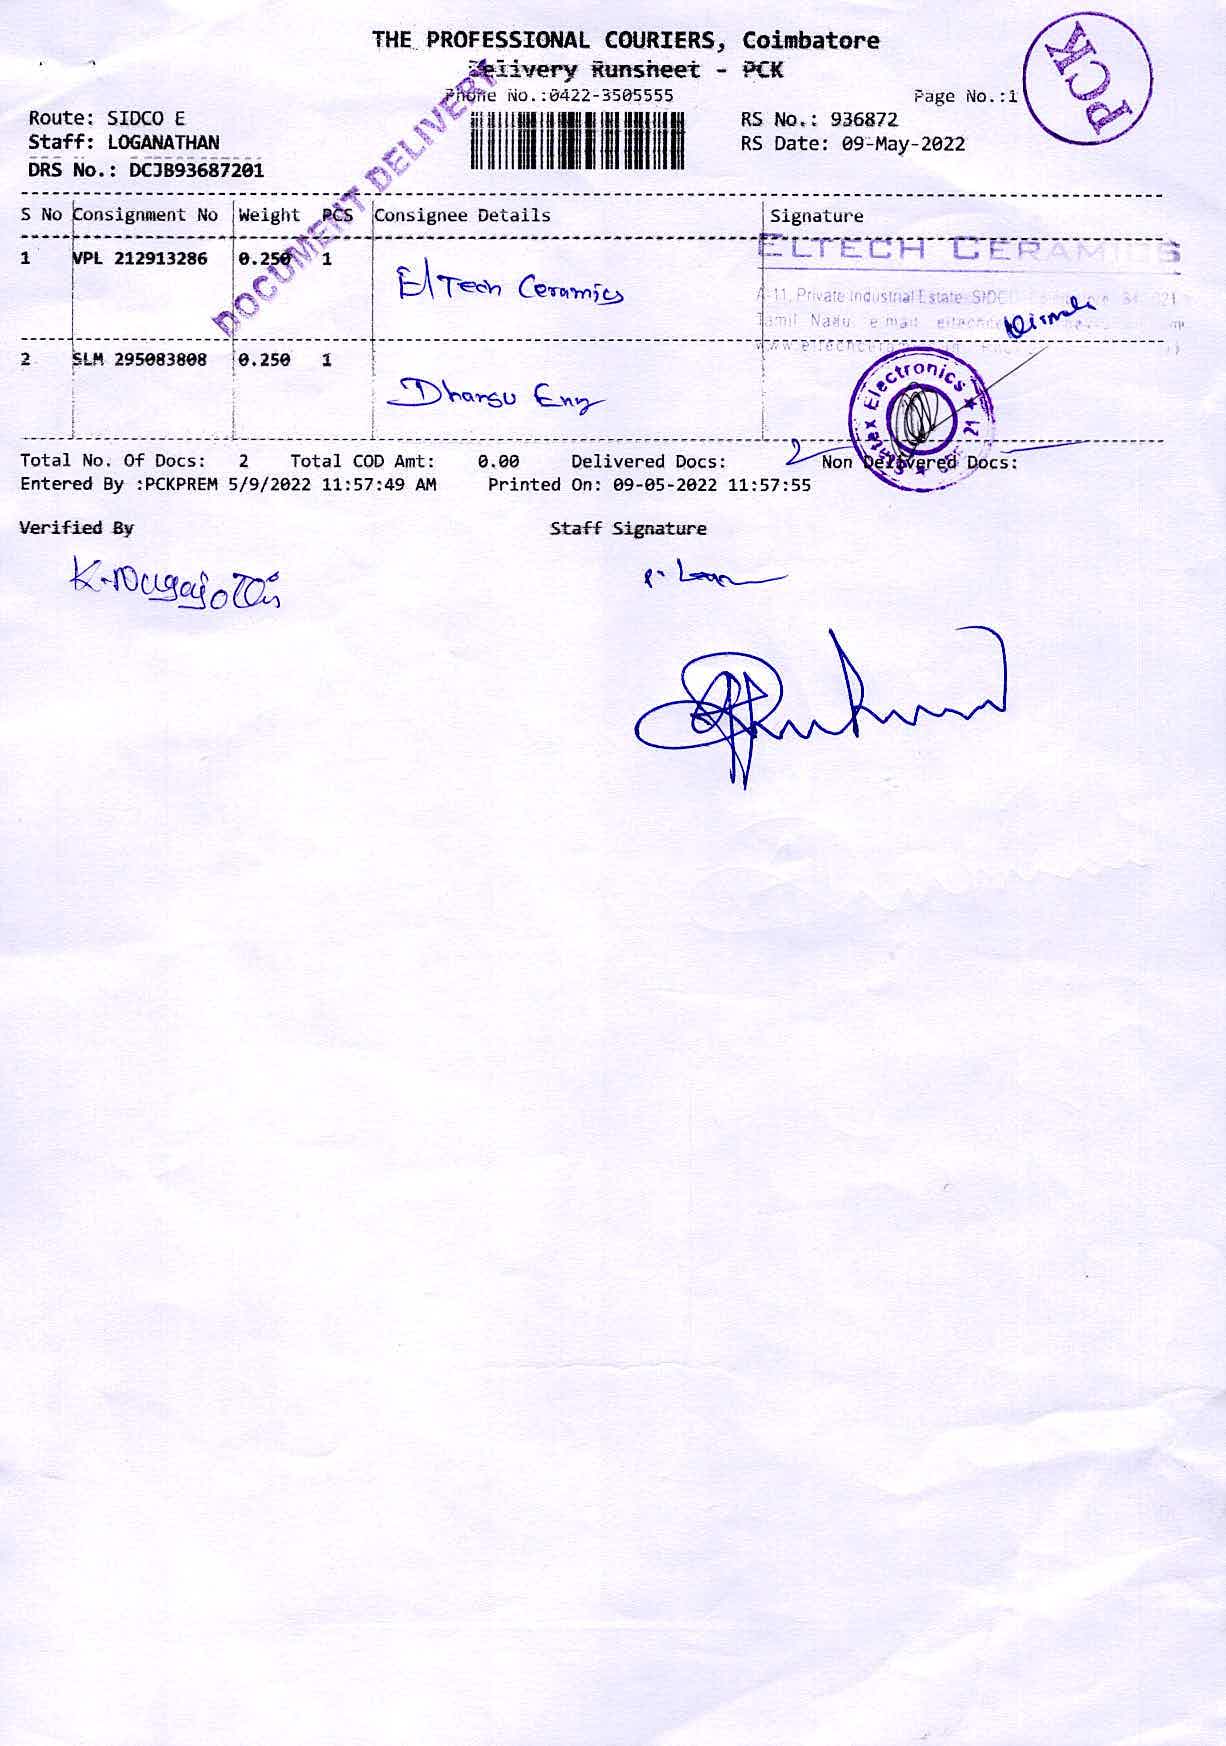 THE PROFESSIONAL COURIERS, Coimbatore
Delivery Runsheet - PCK
PCK
Phone No.:0422-3505555 Page No.:1
Route: SIDCO E RS No.: 936872
Staff: LOGANATHAN RS Date: 09-May-2022
DRS No.: DCJB93687201
DOCUMENT DELIVERY
S No Consignment No Weight PCS Consignee Details Signature
1 VPL 212913286 0.250 1 ElTech Ceramics
ELTECH CERAMICS
A-11, Private Industrial Estate, SIDCO
Tamil Nadu e mail
2 SLM 295083808 0.250 1 Dhansu Eng
Electronics
Total No. Of Docs: 2 Total COD Amt: 0.00 Delivered Docs: 2 Non Delivered Docs:
Entered By :PCKPREM 5/9/2022 11:57:49 AM Printed On: 09-05-2022 11:57:55
Verified By Staff Signature